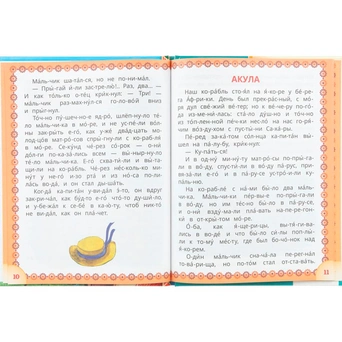 Маль-чик ша-тал-ся, но не по-ни-мал.
— Пры-гай и-ли за-стре-лю!.. Раз, два...
И как толь-ко о-тец крик-нул: — Три! —
маль-чик раз-мах-нул-ся го-ло-вой вниз
и прыг-нул.
Точ-но пу-шеч-но-е яд-ро, шлёп-ну-ло
те-ло маль-чи-ка в мо-ре, и не ус-пе-ли вол-
ны за-крыть е-го, как у-же два-дцать мо-
лод-цов мат-ро-сов спрыг-ну-ли с ко-раб-ля
в мо-ре. Се-кунд че-рез со-рок — о-ни
дол-ги по-ка-за-лись всем — вы-ныр-ну-ло
те-ло маль-чи-ка. Е-го схва-ти-ли и вы-та-
щи-ли на ко-рабль. Че-рез не-сколь-ко ми-
нут у не-го и-зо рта и из но-са по-ли-
лась во-да, и он стал ды-шать.
Ког-да ка-пи-тан у-ви-дал э-то, он вдруг
за-кри-чал, как буд-то е-го что-то ду-ши-ло,
и у-бе-жал к се-бе в ка-ю-ту, чтоб ник-то
не ви-дал, как он пла-чет.
10
АКУЛА
Наш ко-рабль сто-ял на я-ко-ре у бе-ре-
га Аф-ри-ки. День был пре-крас-ный, с мо-
ря дул све-жий ве-тер; но к ве-че-ру по-го-
да из-ме-ни-лась: ста-ло душ-но и точ-но
из топ-лен-ной печ-ки нес-ло на нас го-ря-
чим воз-ду-хом с пус-ты-ни Са-ха-ры.
Пе-ред за-ка-том солн-ца ка-пи-тан вы-
шел на па-лу-бу, крик-нул:
— Ку-пать-ся!
И в од-ну ми-ну-ту мат-ро-сы по-прыг-а-
ли в во-ду, спус-ти-ли в во-ду па-рус, при-
вя-за-ли е-го и в па-ру-се уст-ро-и-ли ку-
паль-ню.
На ко-раб-ле с на-ми бы-ло два маль-чи-
ка. Маль-чи-ки пер-вы-е по-пры-га-ли
в во-ду, но им тес-но бы-ло в па-ру-се, и
о-ни взду-ма-ли пла-вать на-пе-ре-гон-
ки в от-кры-том мо-ре.
О-ба, как я-ще-ри-цы, вы-тя-ги-ва-
лись в во-де и что бы-ло си-лы поп-лы-
ли к то-му мес-ту, где был бо-чо-нок над
я-ко-рем.
О-дин маль-чик сна-ча-ла пе-ре-гнал
то-ва-ри-ща, но по-том стал от-ста-вать.
11